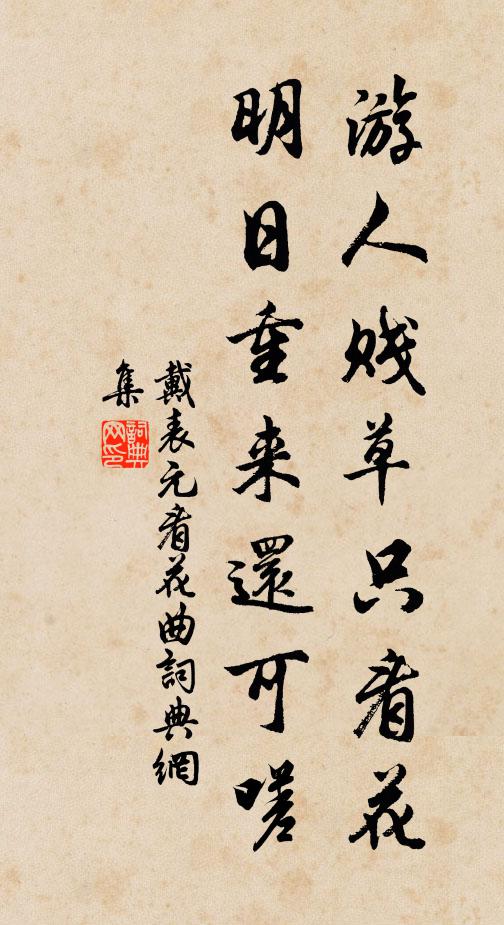 游人贱草只看花
明日重来還可嗟
戴表元看花曲詞典網
集
詞典
网印